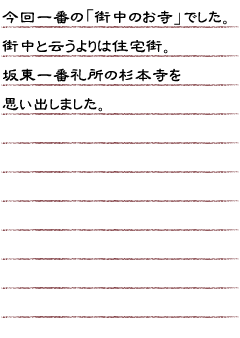 今回一番の「街中のお寺」でした。
街中と云うよりは住宅街。
坂東一番札所の杉本寺を
思い出しました。